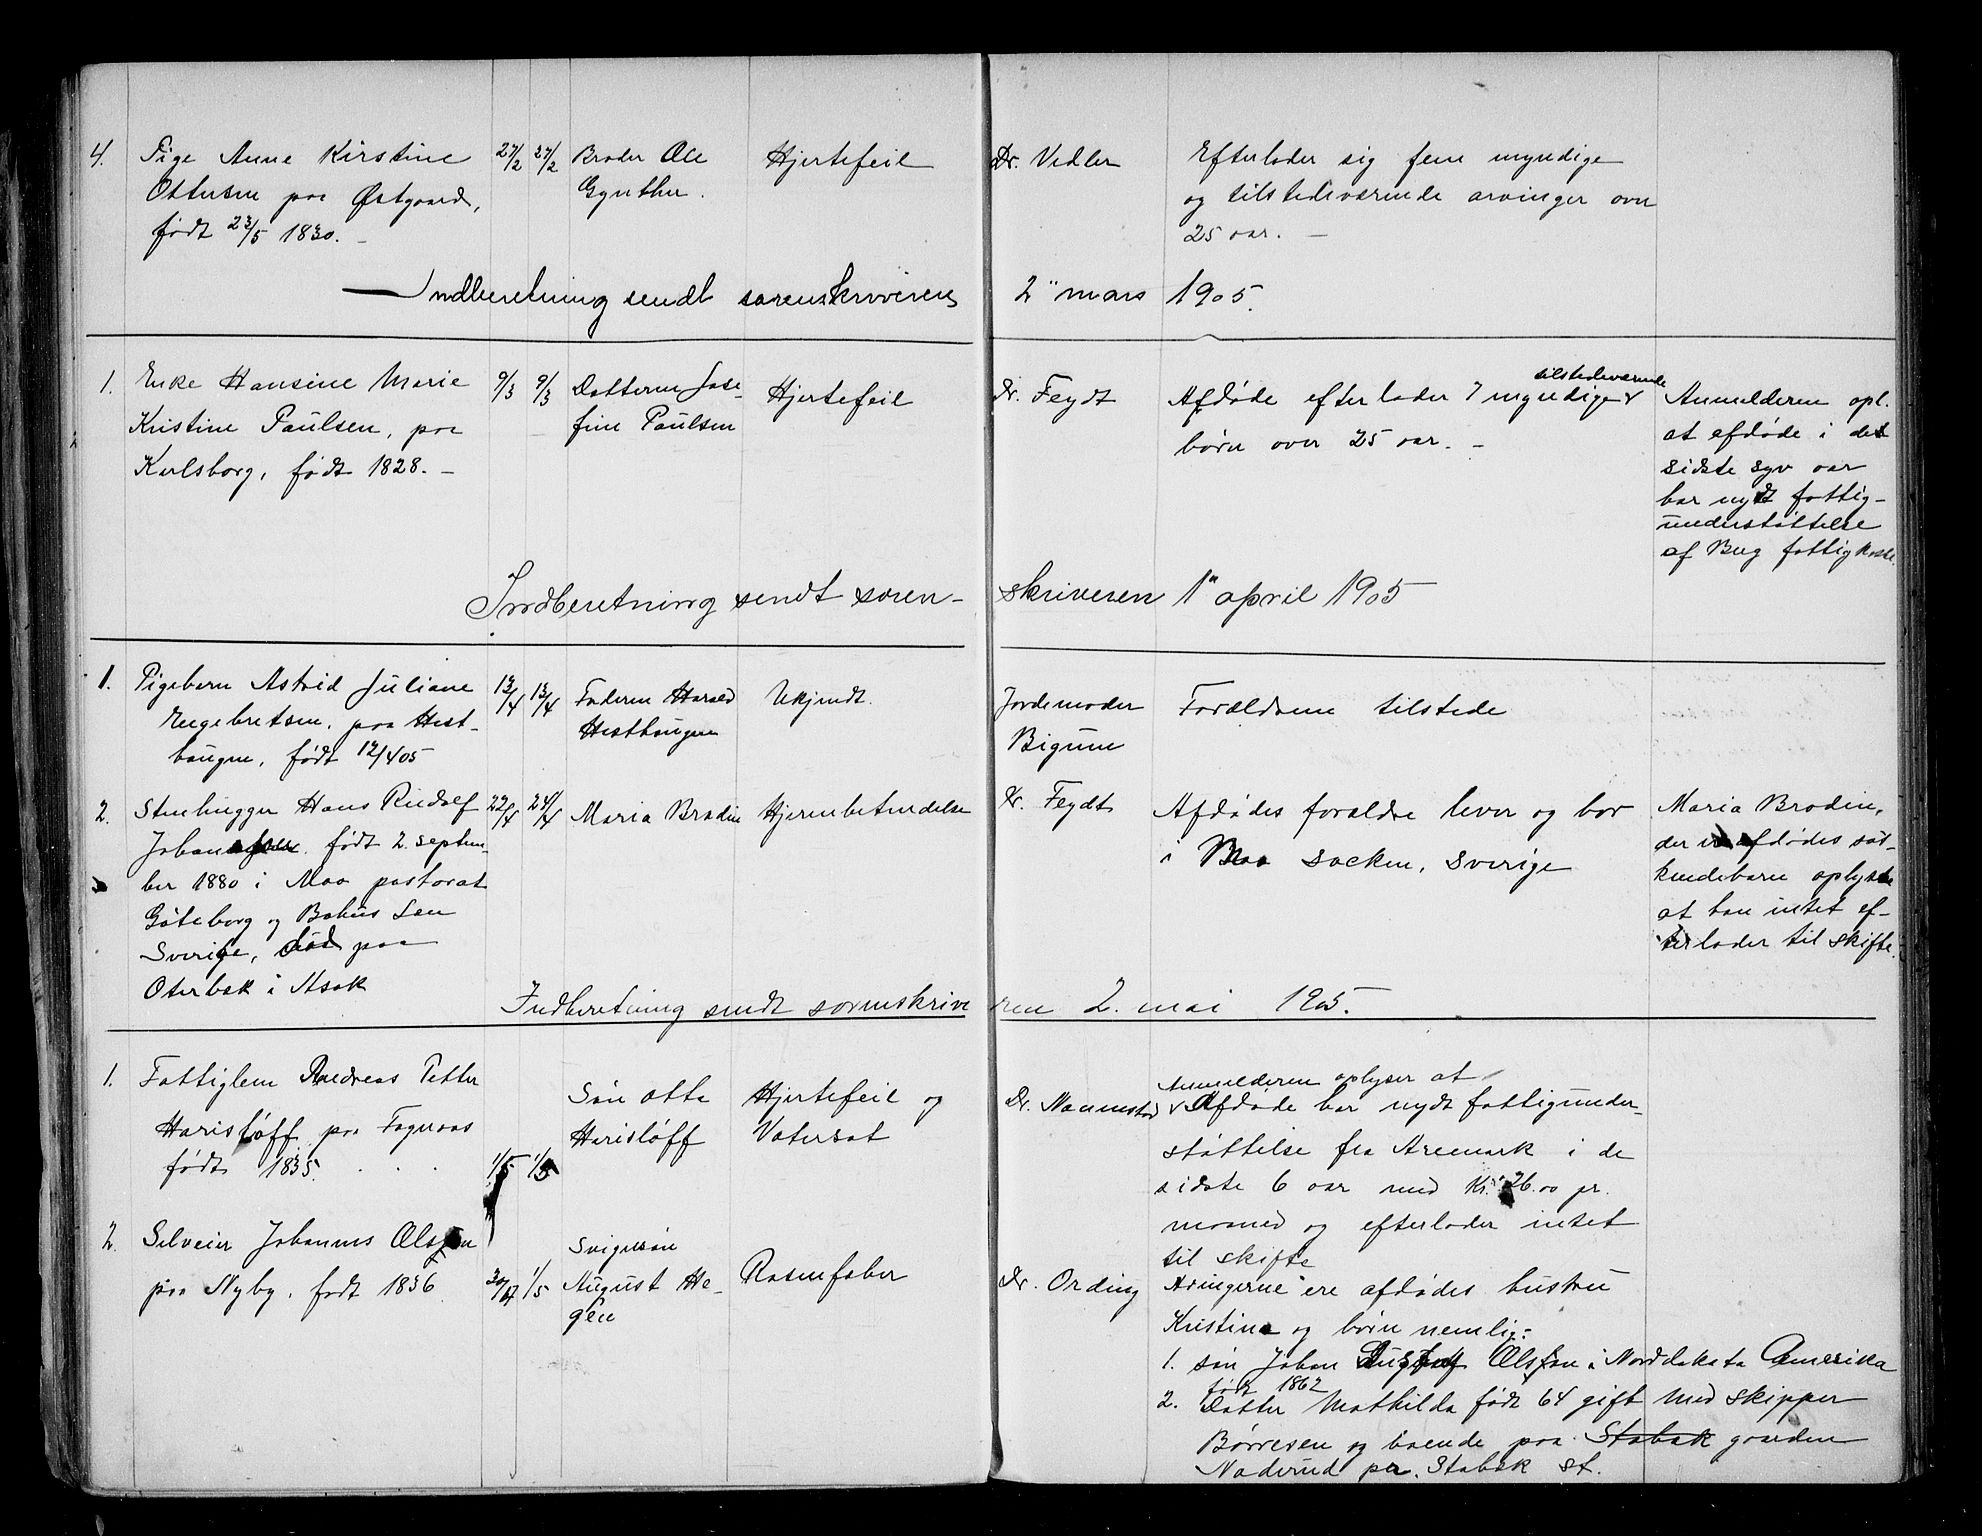 4. Pige Anne Kirstine 27/2 27/2 Broder Ole Hjertefeil Dr. Vedler Efterlader sig fem myndige
Ottersen paa Østgaard, Gynther. og tilstedeværende arvinger over
født 23/5 1830. – 25 aar. –
Indberetning sendt sorenskriveren 2" mars 1905.
1. Enke Hansine Marie 9/3 9/3 Datteren Jose- Hjertefeil Dr. Feydt Afdøde efterlader 7 myndige tilstedeværende Anmelderen opl.
Kristine Paulsen, paa fine Paulsen børn over 25 aar. – at afdøde i det
Kulsborg, født 1828. – sidste syv aar
har nydt fattig-
understøttelse
af Berg fattigkasse.
Indberetning sendt soren- skriveren 1" april 1905
1. Pigebarn Astrid Juliane 13/4 13/4 Faderen Harald Ukjendt. Jordemoder Forældrene tilstede
Engebretsen, paa Hest- Hesthaugen Bigum
haugen, født 12/4 05
2. Stenhugger Hans Rudolf 22/4 24/4 Maria Brodin Hjernebetændelse Dr. Feydt Afdødes forældre lever og bor Maria Brodin,
Johansson, født 2 septem- i Moo socken, Sverige der er afdødes søs-
ber 1880 i Moo pastorat kendebarn oplyste
Göteborg og Bohus Len at han intet ef-
Sverige, død paa terlader til skifte.
Oterbæk i Asak
Indberetning sendt sorenskriveren 2. mai 1905.
1. Fattiglem Andreas Petter Søn Otto Hjertefeil og Anmelderen oplyser at
Harisløff paa Fageraas Harisløff Vatersot Dr. Naumstad Afdøde har nydt fattigunder-
født 1835. 1/5 1/5 støttelse fra Aremark i de
sidste 6 aar med Kr. 26.00 pr.
maaned og efterlader intet
til skifte
2. Selveier Johannes Olsson Svigersøn
paa Nyby, født 1836 30/4 1/5 August He- Rosenfeber Dr. Ording Arvingerne ere afdødes hustru
gen Kristine og børn nemlig:
1. søn Johan Gustaf Olsson i Norddakota Amerika
født 1862
2. Datter Mathilda født 64 gift med skipper
Børresen og boende paa Stabæk gaarden
Naderud pr. Stabæk st.